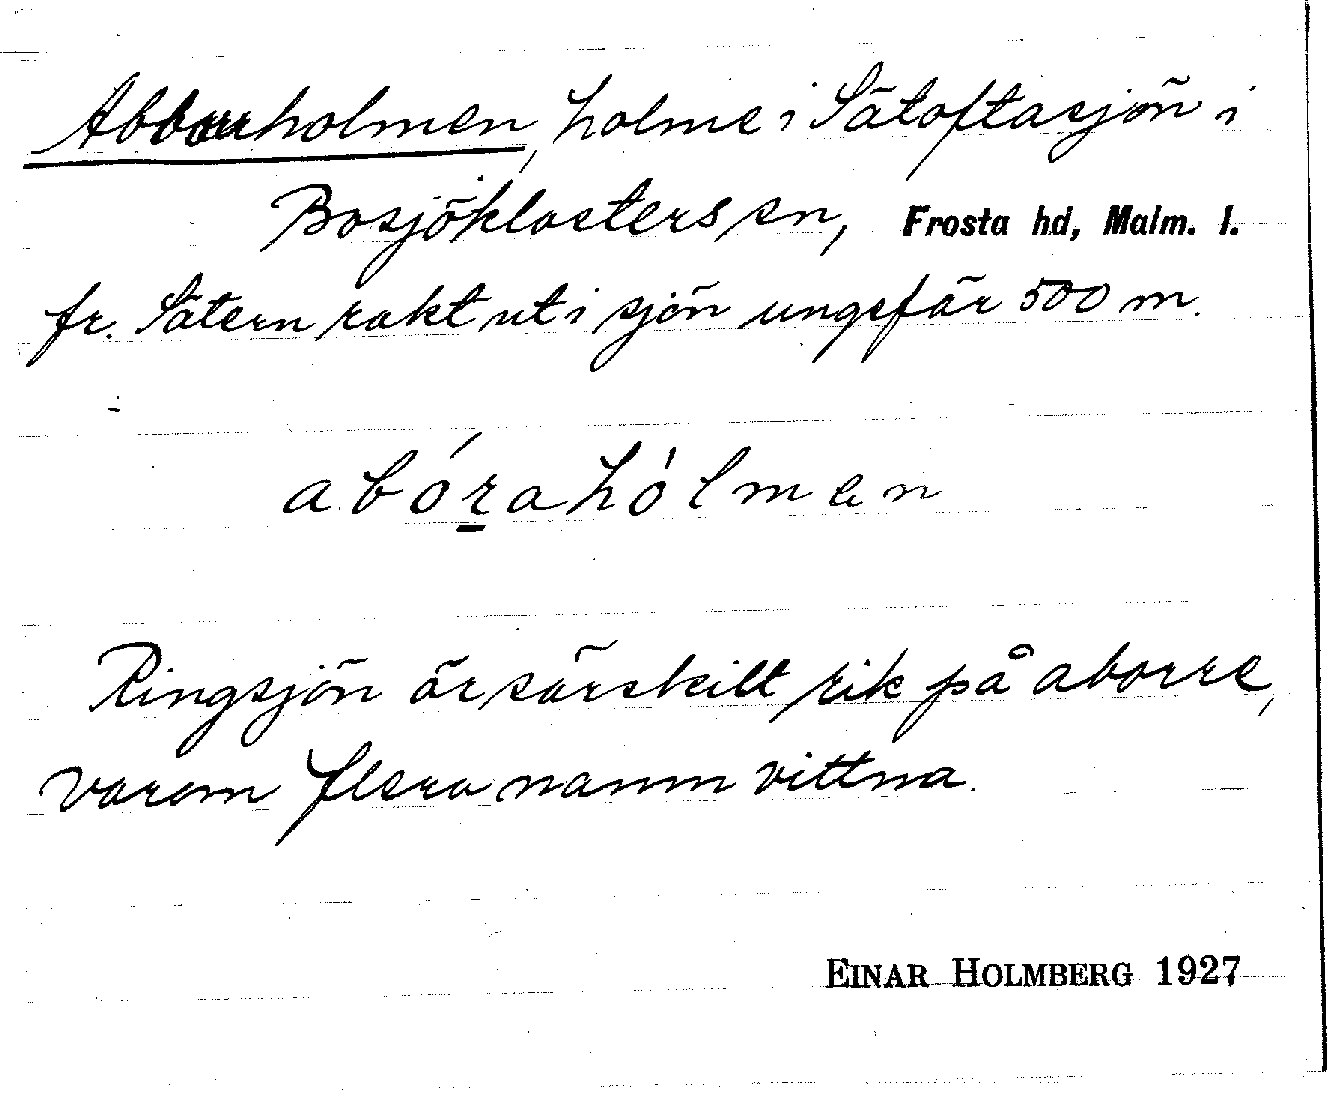 Abborrholmen, holme i Sätoftasjön i
Bosjöklosters sn, Frosta hd, Malm. l.
fr. Sätern rakt ut i sjön ungefär 500 m.
abórahólmen
Ringsjön är särskilt rik på aborre,
varom flera namn vittna.
EINAR HOLMBERG 1927